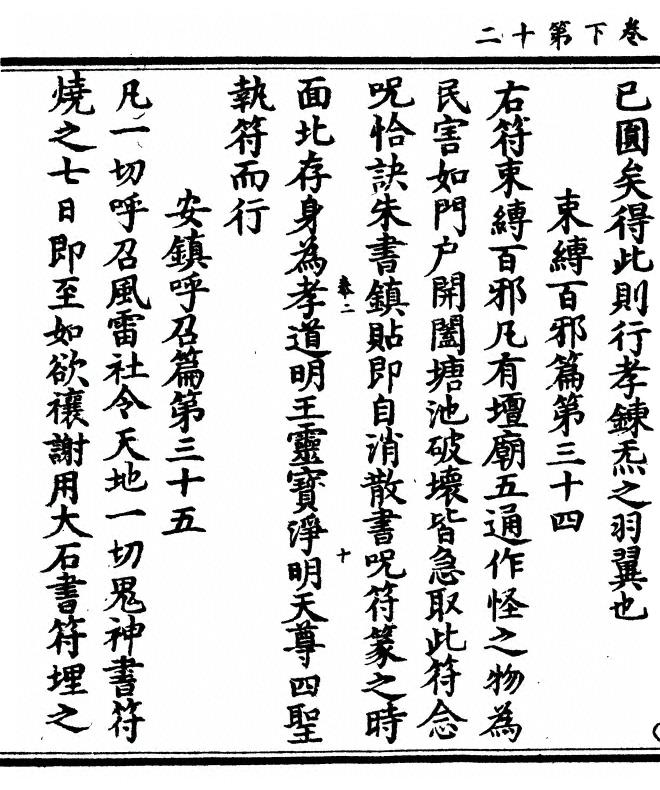 卷下第十二
已圓矣得此則行孝鍊炁之羽翼也
束縛百邪篇第三十四
右符束縛百邪凡有壇廟五通作怪之物為
民害如門户開闔塘池破壞皆急取此符念
呪恰訣朱書鎮貼即自消散書呪符篆之時
卷二
十
面北存身為孝道明王靈寶淨明天尊四聖
執符而行
安鎮呼召篇第三十五
凡一切呼召風雷社令天地一切鬼神書符
燒之七日即至如欲禳謝用大石書符埋之